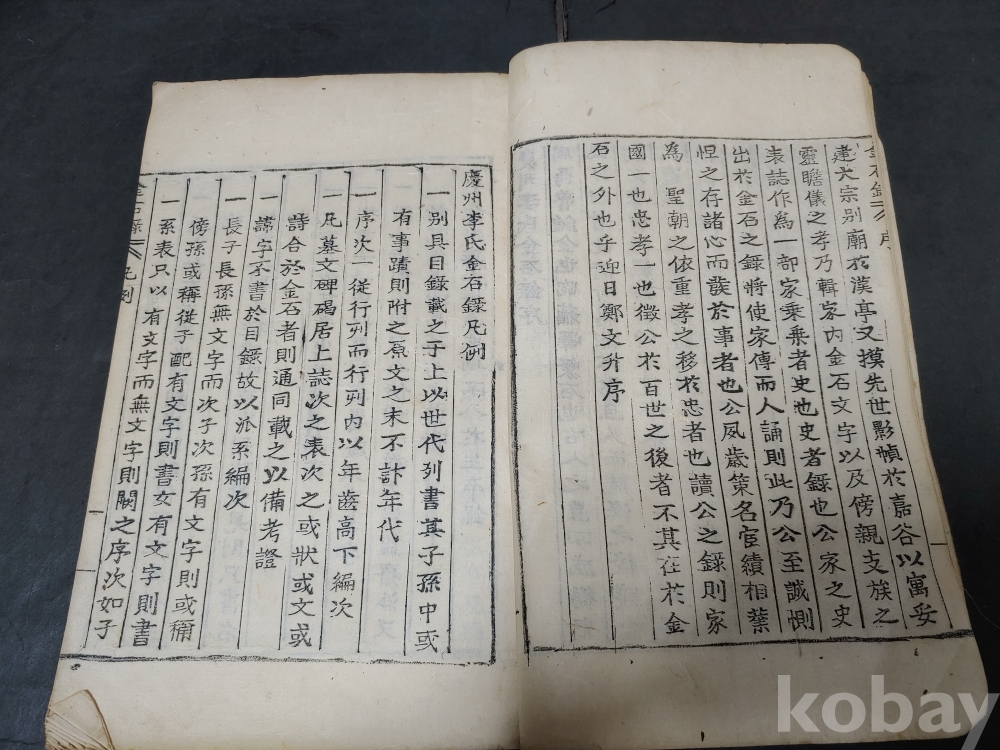 金石錄 序
建大宗別廟於漢亭又摸先世影幀於嘉谷以寓妥
靈瞻儀之孝乃輯家內金石文字以及傍親支族之
表誌作為一部家乘乘者史也史者錄也公家之史
出於金石之錄將使家傳而人誦則此乃公至誠惻
怛之存諸心而發於事者也公夙歲策名宦績相葉
為 聖朝之依重孝之移於忠者也讀公之錄則家
國一也忠孝一也徵公於百世之後者不其在於金
石之外也乎迎日鄭文升序
慶州李氏金石錄凡例
一別具目錄載之于上以世代列書其子孫中或
有事蹟則附之原文之末不計年代
一序次一從行列而行列內以年齒高下編次
一凡墓文碑碣居上誌次之表次之或狀或文或
詩合於金石者則通同載之以備考證
一諱字不書於目錄故以派系編次
一長子長孫無文字而次子次孫有文字則或稱
傍孫或稱從子配有文字則書女有文字則書
一系表只以 有文字而無文字則闕之序次如子
金石錄 凡例
kobay